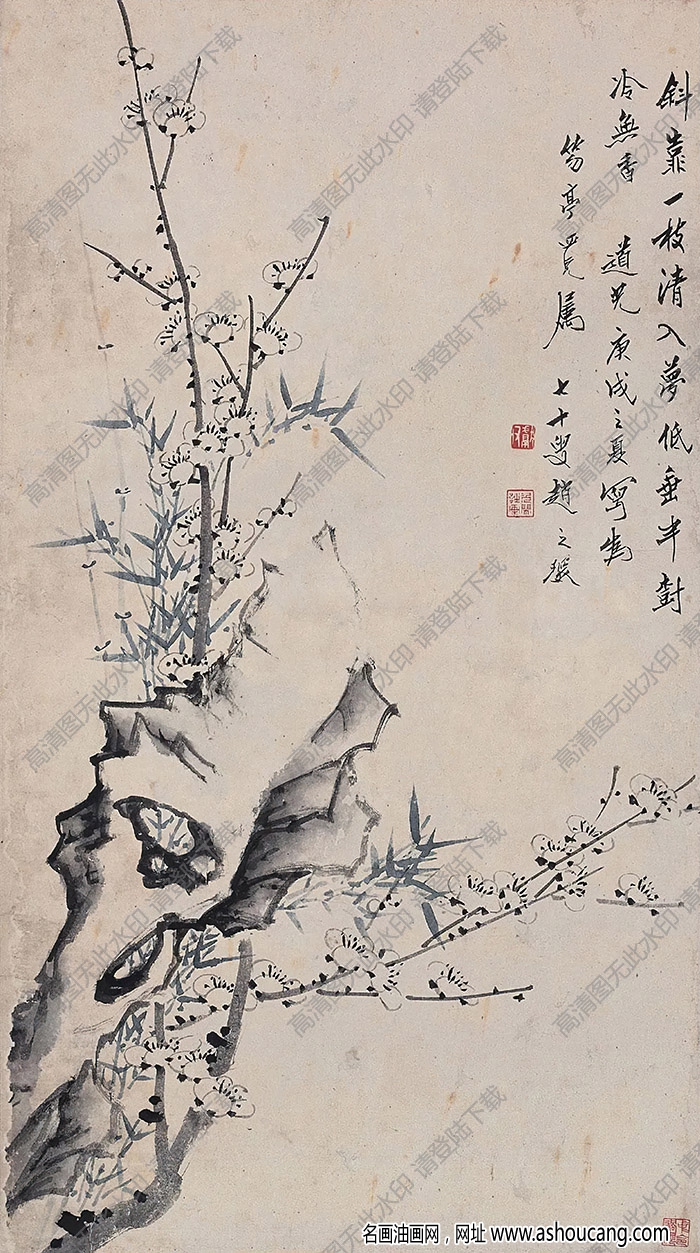 斜靠一枝清入夢低垂半對
冷無香 道光庚戌之夏寫為
笏亭四兄屬 七十叟趙之璨
高清图无此水印 请登陆下载
名画油画网，网址 www.ashoucang.com